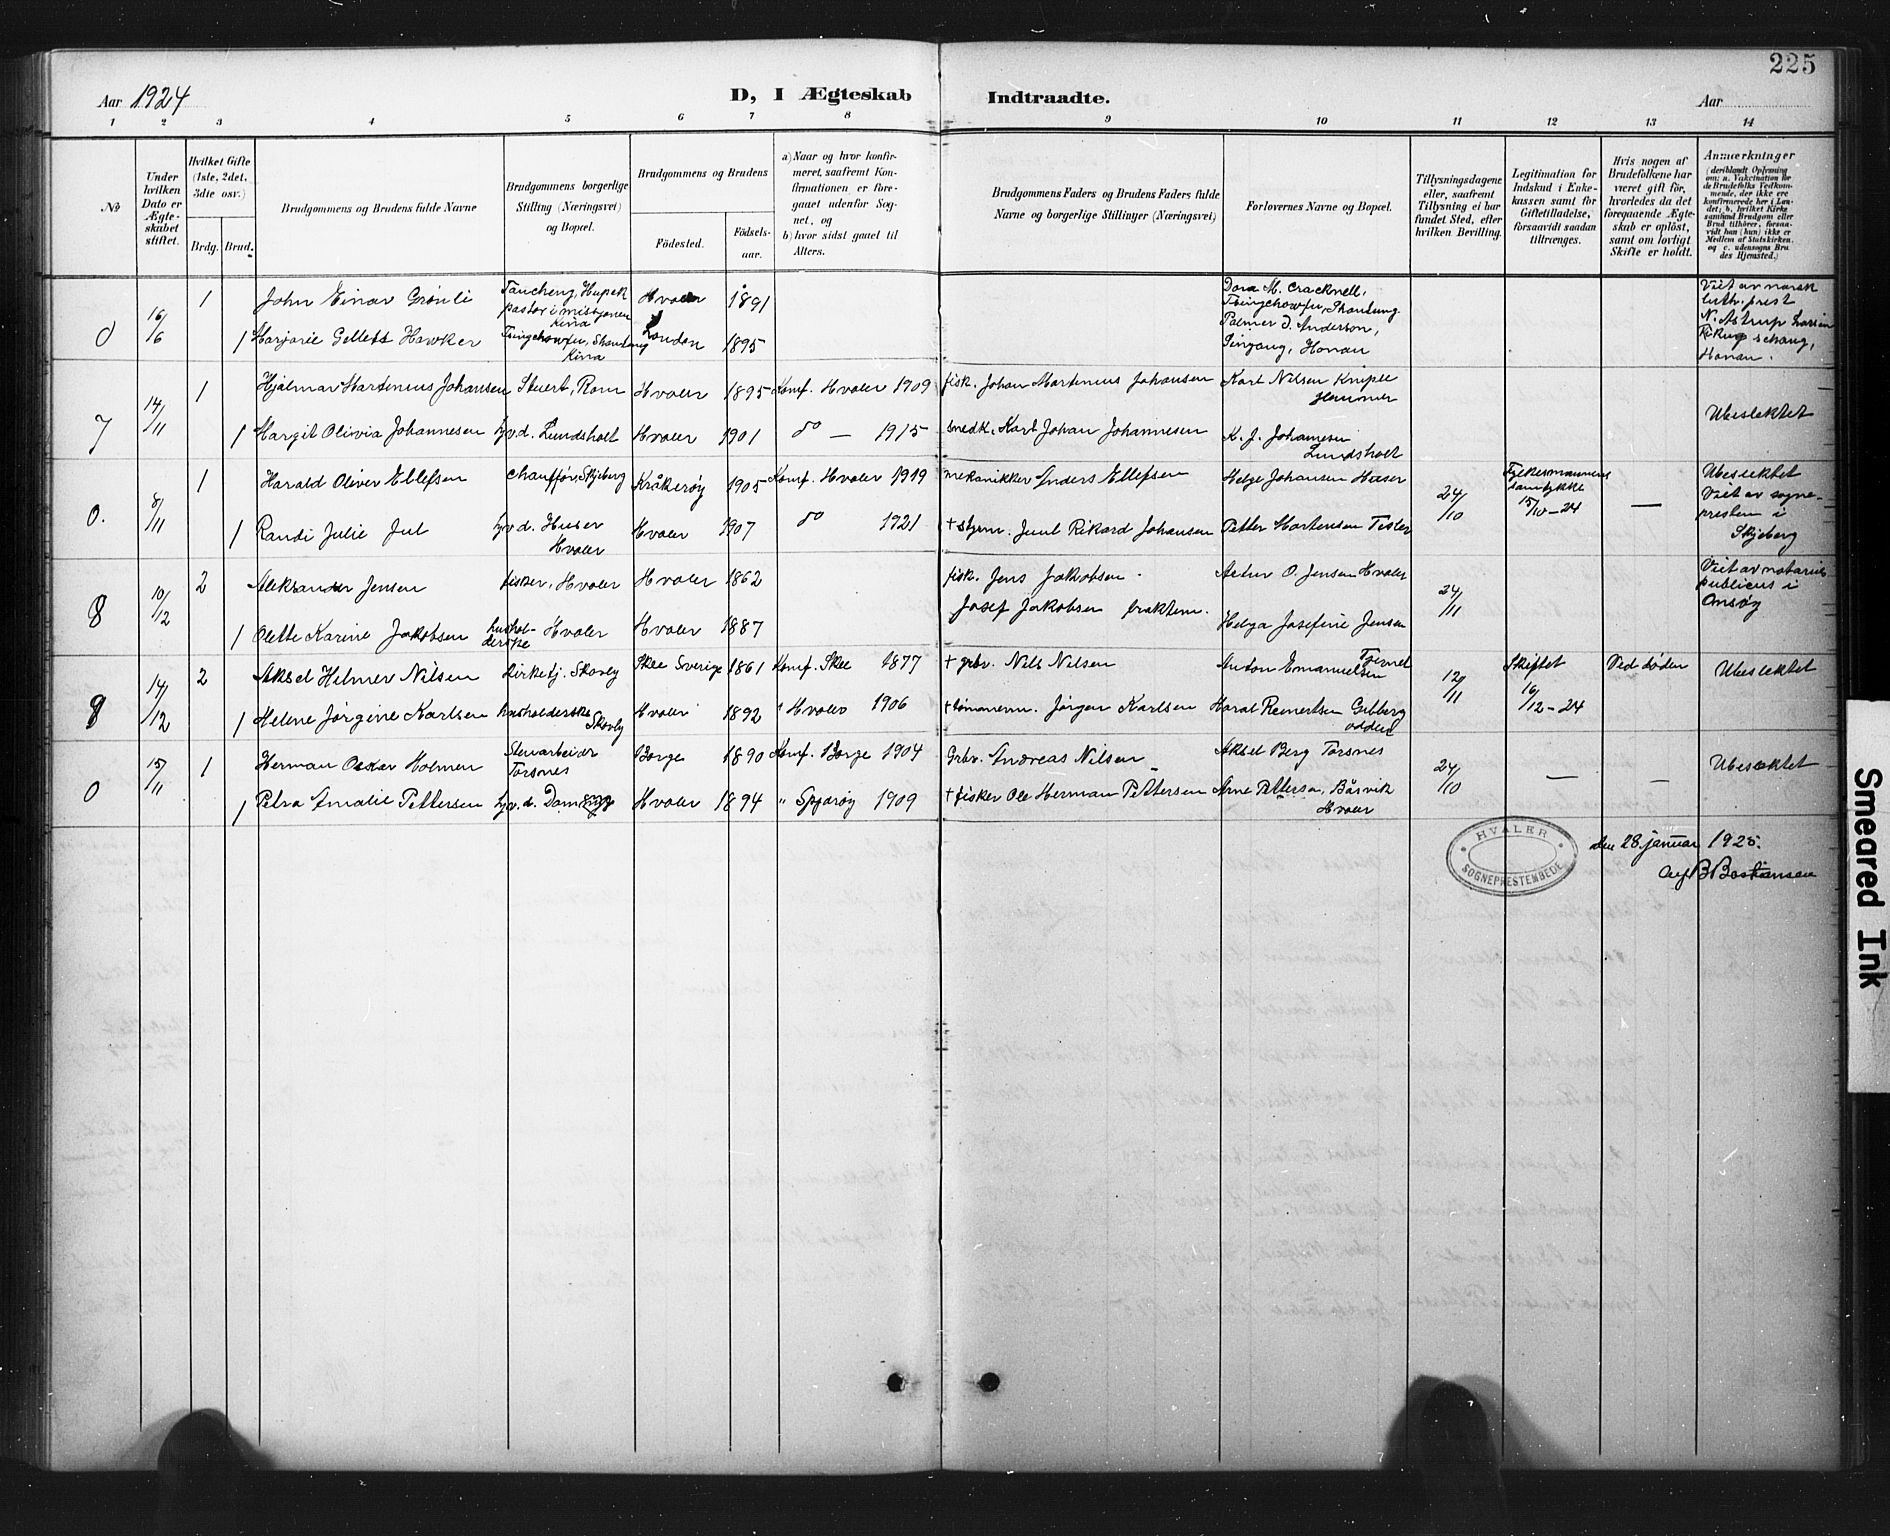 225
Aar 1924
D, I Ægteskab Indtraadte.
Aar
1 2 3 4 5 6 7 8 9 10 11 12 13 14
No
Under hvilken Dato er Ægteskabet stiftet.
Hvilket Gifte (1ste, 2det, 3die osv.)
Brdg. Brud.
Brudgommens og Brudens fulde Navne
Brudgommens borgerlige Stilling (Næringsvei) og Bopæl.
Brudgommens og Brudens
Födested.
Födselsaar.
a) Naar og hvor konfirmeret, saafremt Konfirmationen er foregaaet udenfor Sognet, og
b) hvor sidst gaaet til Alters.
Brudgommens Faders og Brudens Faders fulde Navne og borgerlige Stillinger (Næringsvei)
Forlovernes Navne og Bopæl.
Tillysningsdagene eller, saafremt Tillysning ei har fundet Sted, efter hvilken Bevilling.
Legitimation for Indskud i Enkekassen samt for Giftetilladelse, forsaavidt saadan tiltrænges.
Hvis nogen af Brudefolkene har været gift för, hvorledes da det foregaaende Ægteskab er oplöst, samt om lovligt Skifte er holdt.
Anmærkninger (deriblandt Oplysning om: a. Vakcination for de Brudefolks Vedkommende, der ikke ere konfirmerede her i Landet; b. hvilket Kirkesamfund Brudgom eller Brud tilhörer, forsaavidt han (hun) ikke er Medlem af Statskirken, og c. udensogns Brudes Hjemsted.)
0 16/6 1 John Einar Grönli Taucheng, Hupek pastor i misjonen Kina Hvaler 1891
1 Marjorie Gellett Hawker Tsingchowfu, Shantung Kina London 1895
Dora M. Cracknell, Tsingchowfu, Shantung.
Palmer J. Anderson, Sinyang, Honan
Viet av norsk luth. prest N. Astrup Larsen Honan.
7 14/11 1 Hjalmar Martinius Johansen Stuert, Rom Hvaler 1895 Konf. Hvaler 1909 fisk. Johan Martinius Johansen Karl Nilsen Kniple
1 Margit Olivia Johannesen hjv.d. Lundsholt Hvaler 1901 do — 1915 smedk. Karl Johan Johannesen K. J. Johannesen Lundsholt
Ubeslektet
0. 8/11 1 Harald Oliver Ellefsen Chauffør, Skjeberg Kråkerøy 1905 Konf. Hvaler 1919 mekanikker Anders Ellefsen Helge Johansen Huser
1 Randi Julie Jul hjv.d. Huser Hvaler Hvaler 1907 do 1921 + styrm. Juul Rikard Johansen Petter Martensen Tisler
24/10 Fylkesmannens samtykke 15/10-24 —
Ubeslektet Viet av sognepresten i Skjeberg
8 10/12 2 Aleksander Jensen fisker, Hvaler Hvaler 1862 fisk. Jens Jakobsen. Artur O. Jensen Hvaler
1 Olette Karine Jakobsen husholderske Hvaler Hvaler 1887 Josef Jakobsen Helga Josefine Jensen
24/11
Viet av notarius publicus i Onsøy
9 14/12 2 Aksel Hilmer Nilsen Kirketj. Skovby Skee Sverige 1861 Konf. Skee 1877 + grbr. Nils Nilsen Anton Emanuelsen
1 Helene Jørgine Karlsen husholderske Skovby Hvaler 1892 " Hvaler 1906 + tømmerm. Jørgen Karlsen Haral Reinertsen
12/11 Skiftet 16/12-24 Ved døden Ubeslektet
0 15/11 1 Herman Oskar Holmen Stenarbeider Torsnes Borge 1890 Konf. Borge 1904 Grbr. Andreas Nilsen Aksel Berg Torsnes
1 Petra Amalie Pettersen hjv.d. Hvaler 1894 " Spjærøy 1909 + fisker Ole Herman Pettersen Arne Petterson, Båsvik Hvaler
24/10 — — Ubeslektet
HVALER SOGNEPRESTEMBEDE
den 28 januar 1925.
Alf B Bastiansen
Smeared Ink